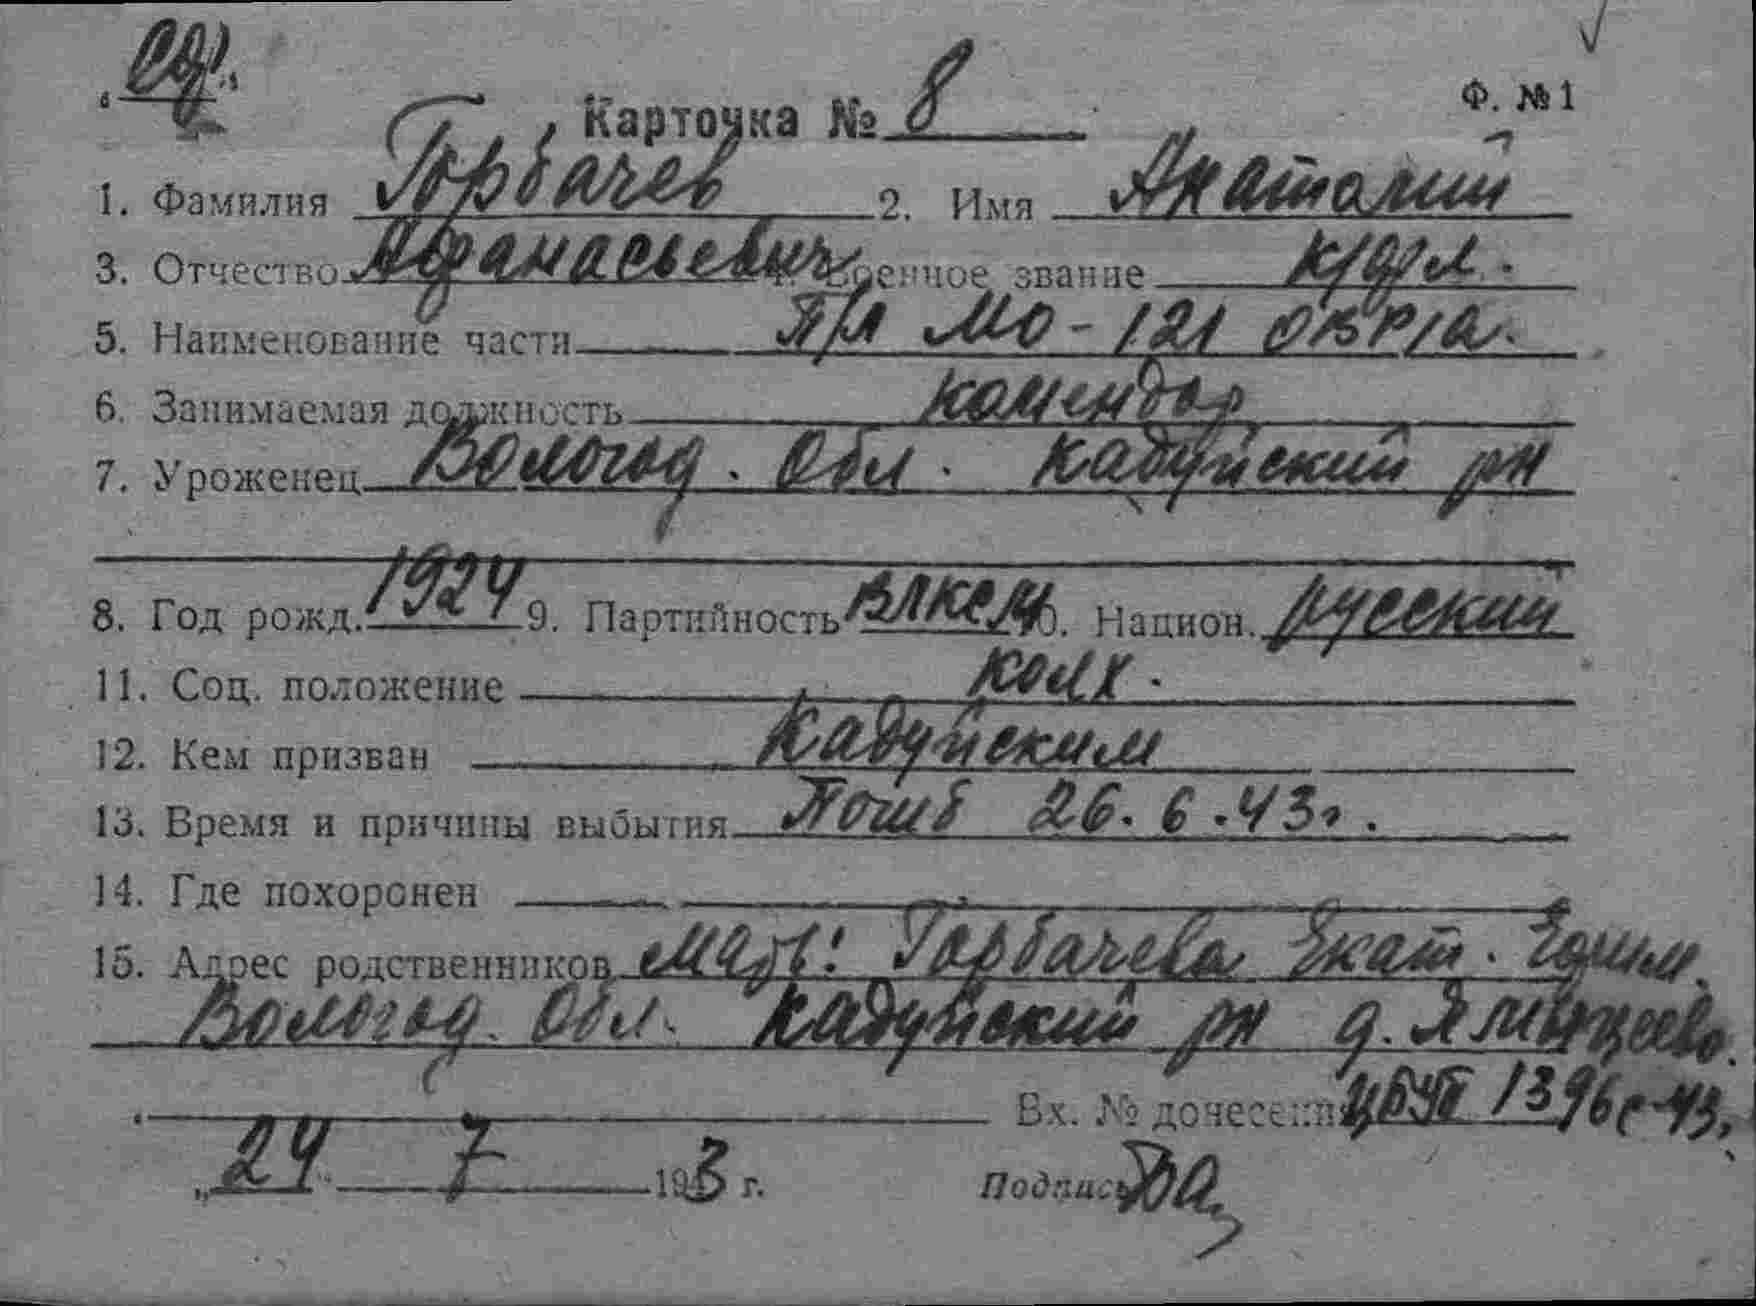 Ф. №1
Карточка № 8
1. Фамилия Горбачев 2. Имя Анатолий
3. Отчество Афанасьевич 4. Военное звание к/фл.
5. Наименование части п/я МО-121 ОВР'а.
6. Занимаемая должность комендор
7. Уроженец Вологод. Обл. Кадуйский рн
8. Год рожд. 1924 9. Партийность ВЛКСМ 10. Национ. русский
11. Соц. положение колх.
12. Кем призван Кадуйским
13. Время и причины выбытия Погиб 26.6.43г.
14. Где похоронен
15. Адрес родственников Мать: Горбачева Екат. Ефим.
Вологод. Обл. Кадуйский рн д.
Вх. № донесения 1396с-43.
„24" 7 1943 г. Подпись